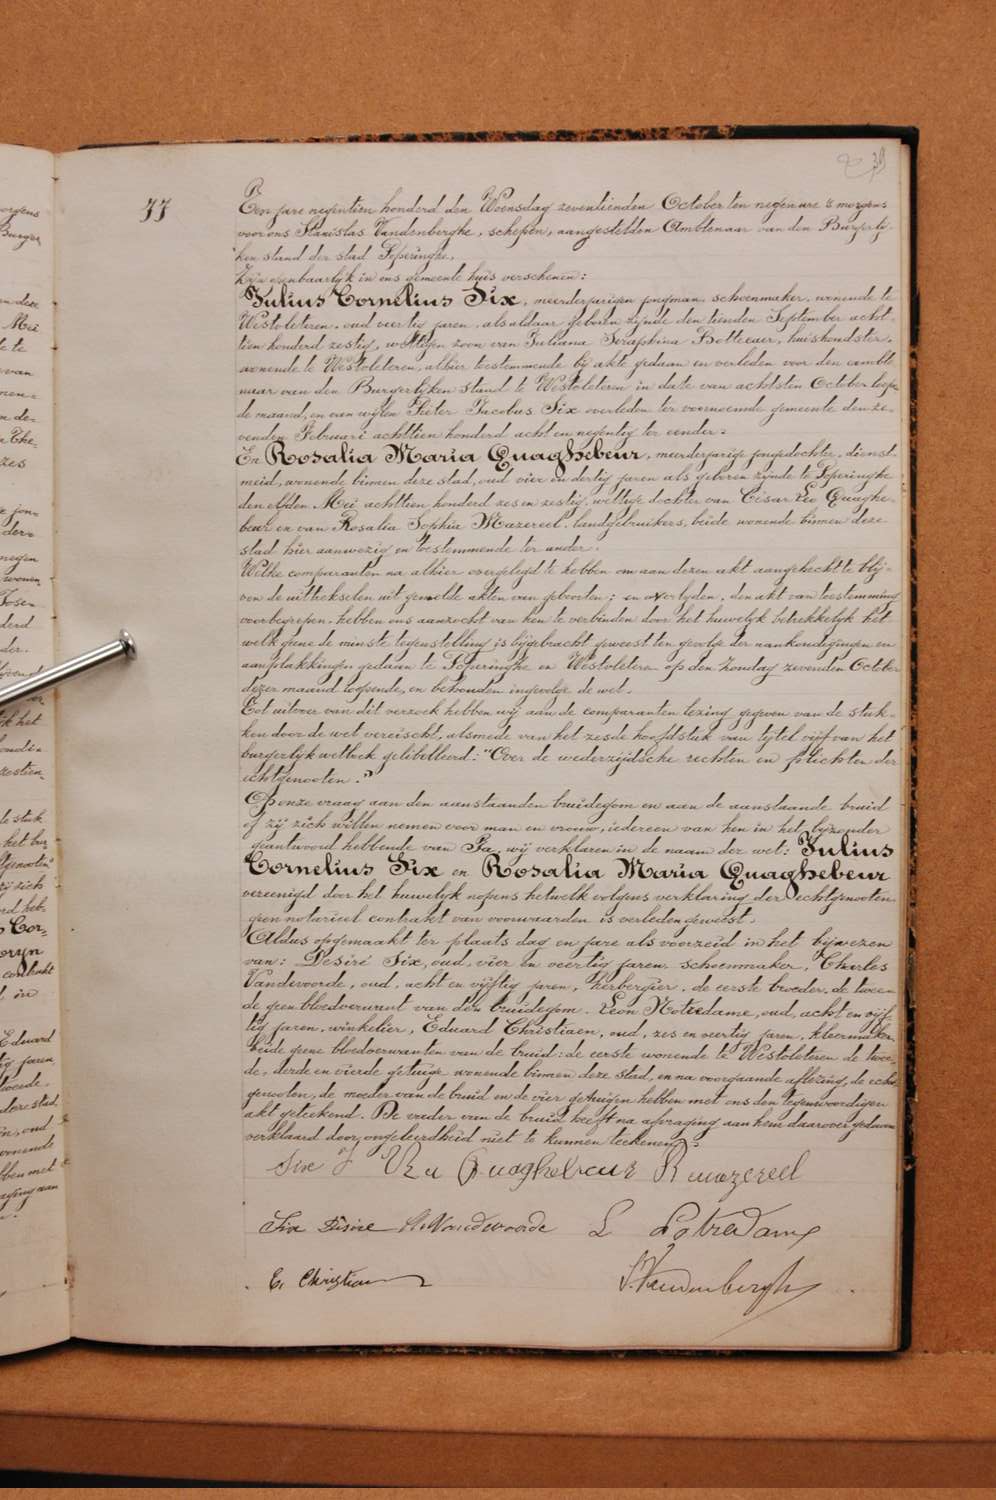 39
77
Ten jare negentien honderd den Woensdag zeventienden October ten negen ure 's morgens
voor ons Stanislas Vandenberghe, schepen, aangestelden Ambtenaar van den Burgerlij-
ken stand der stad Poperinghe,
Zijn openbaarlijk in ons gemeente huis verschenen:
Julius Cornelius Six, meerderjarigen jongman, schoenmaker, wonende te
Westvleteren, oud veertig jaren, als aldaar geboren zijnde den tienden September acht-
tien honderd zestig, wettigen zoon van Juliana Seraphina Botteeuer, huishoudster,
wonende te Westvleteren, alhier toestemmende bij akte gedaan en verleden voor den ambte
naar van den Burgerlijken stand te Westvleteren in date van achtsten October loopen
de maand, en van wijlen Pieter Jacobus Six overleden ter voornoemde gemeente den ze-
venden Februari achttien honderd acht en negentig ter eender:
En Rosalia Maria Quaghebeur, meerderjarige jongedochter, dienst-
meid, wonende binnen deze stad, oud vier en dertig jaren als geboren zijnde te Poperinghe
den elfden Mei achttien honderd zes en zestig, wettige dochter van César Leo Quaghe-
beur en van Rosalia Sophia Mazereel, landgebruikers, beide wonende binnen deze
stad hier aanwezig en toestemmende ter ander.
Welke comparanten na alhier overgelegd te hebben om aan dezen akt aangehecht te blij-
ven de uittrekselen uit gemelde akten van geboorten; en overlyden, den akt van toestemming
voorbegrepen, hebben ons aanzocht van hen te verbinden door het huwelyk betrekkelyk het
welk geene de minste tegenstelling is bijgebracht geweest ten gevolge der aankondigingen en
aanplakkingen gedaen te Poperinghe en Westvleteren op den Zondag zevenden October
dezer maand loopende, en behouden ingevolge de wet.
Tot uitvoer van dit verzoek hebben wij aan de comparanten lezing gegeven van de stuk-
ken door de wet vereischt, alsmede van het zesde hoofdstuk van tytel vijf van het
burgerlyk wetboek gelibelleerd: "Over de wederzijdsche rechten en plichten der
echtgenooten."
Op onze vraag aan den aanstaanden bruidegom en aan de aanstaande bruid
of zij zich willen nemen voor man en vrouw, iedereen van hen in het byzonder
geantwoord hebbende van Ja, wij verklaren in de naam der wet: Julius
Cornelius Six en Rosalia Maria Quaghebeur
vereenigd door het huwelyk nopens hetwelk volgens verklaring der echtgenooten
geen notarieel contrakt van voorwaarden is verleden geweest.
Aldus opgemaakt ter plaats dag en jare als voorzeid in het bijwezen
van: Desiré Six, oud, vier en veertig jaren schoenmaker, Charles
Vandevoorde, oud, acht en vijftig jaren, herbergier, de eerste broeder, de twee-
de geen bloedverwant van den bruidegom. Leon Notredame, oud, acht en vijf-
tig jaren, winkelier, Eduard Christiaen, oud, zes en veertig jaren, kleermaker,
beide geene bloedverwanten van de bruid: de eerste wonende te Westvleteren de twee-
de, derde en vierde getuige wonende binnen deze stad, en na voorgaande aflezing, de echt-
genooten, de moeder van de bruid en de vier getuigen hebben met ons den tegenwoordigen
akt geteekend. De vader van de bruid heeft na afvraging aan hem daarover gedaan
verklaard door ongeleerdheid niet te kunnen teekenen.
Six J Quaghebeur R mazereel
Six Désiré Vandevoorde L Notredame
E. Christiaen S. Vandenberghe